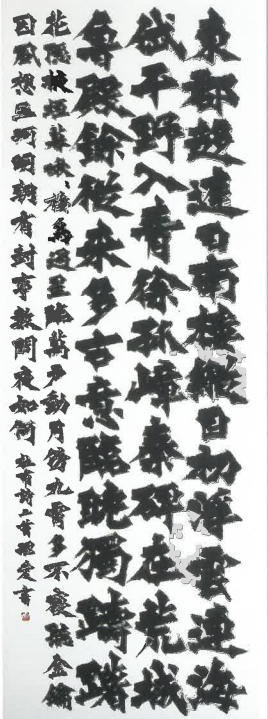 東郡趨庭日南樓縱目初浮雲連海
岱平野入青徐孤嶂秦碑在荒城
魯殿餘從来多古意臨眺獨躊躇
花隱掖垣暮啾〻棲鳥過星臨萬戶動月傍九霄多不寢聽金鑰
因風想玉珂明朝有封事數問夜如何 杜甫詩二首 書